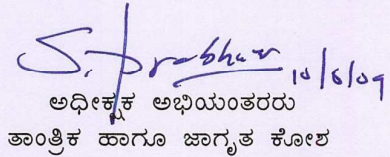 S. Prabhar 10/6/09
ಅಧೀಕ್ಷಕ ಅಭಿಯಂತರರು
ತಾಂತ್ರಿಕ ಹಾಗೂ ಜಾಗೃತ ಕೋಶ